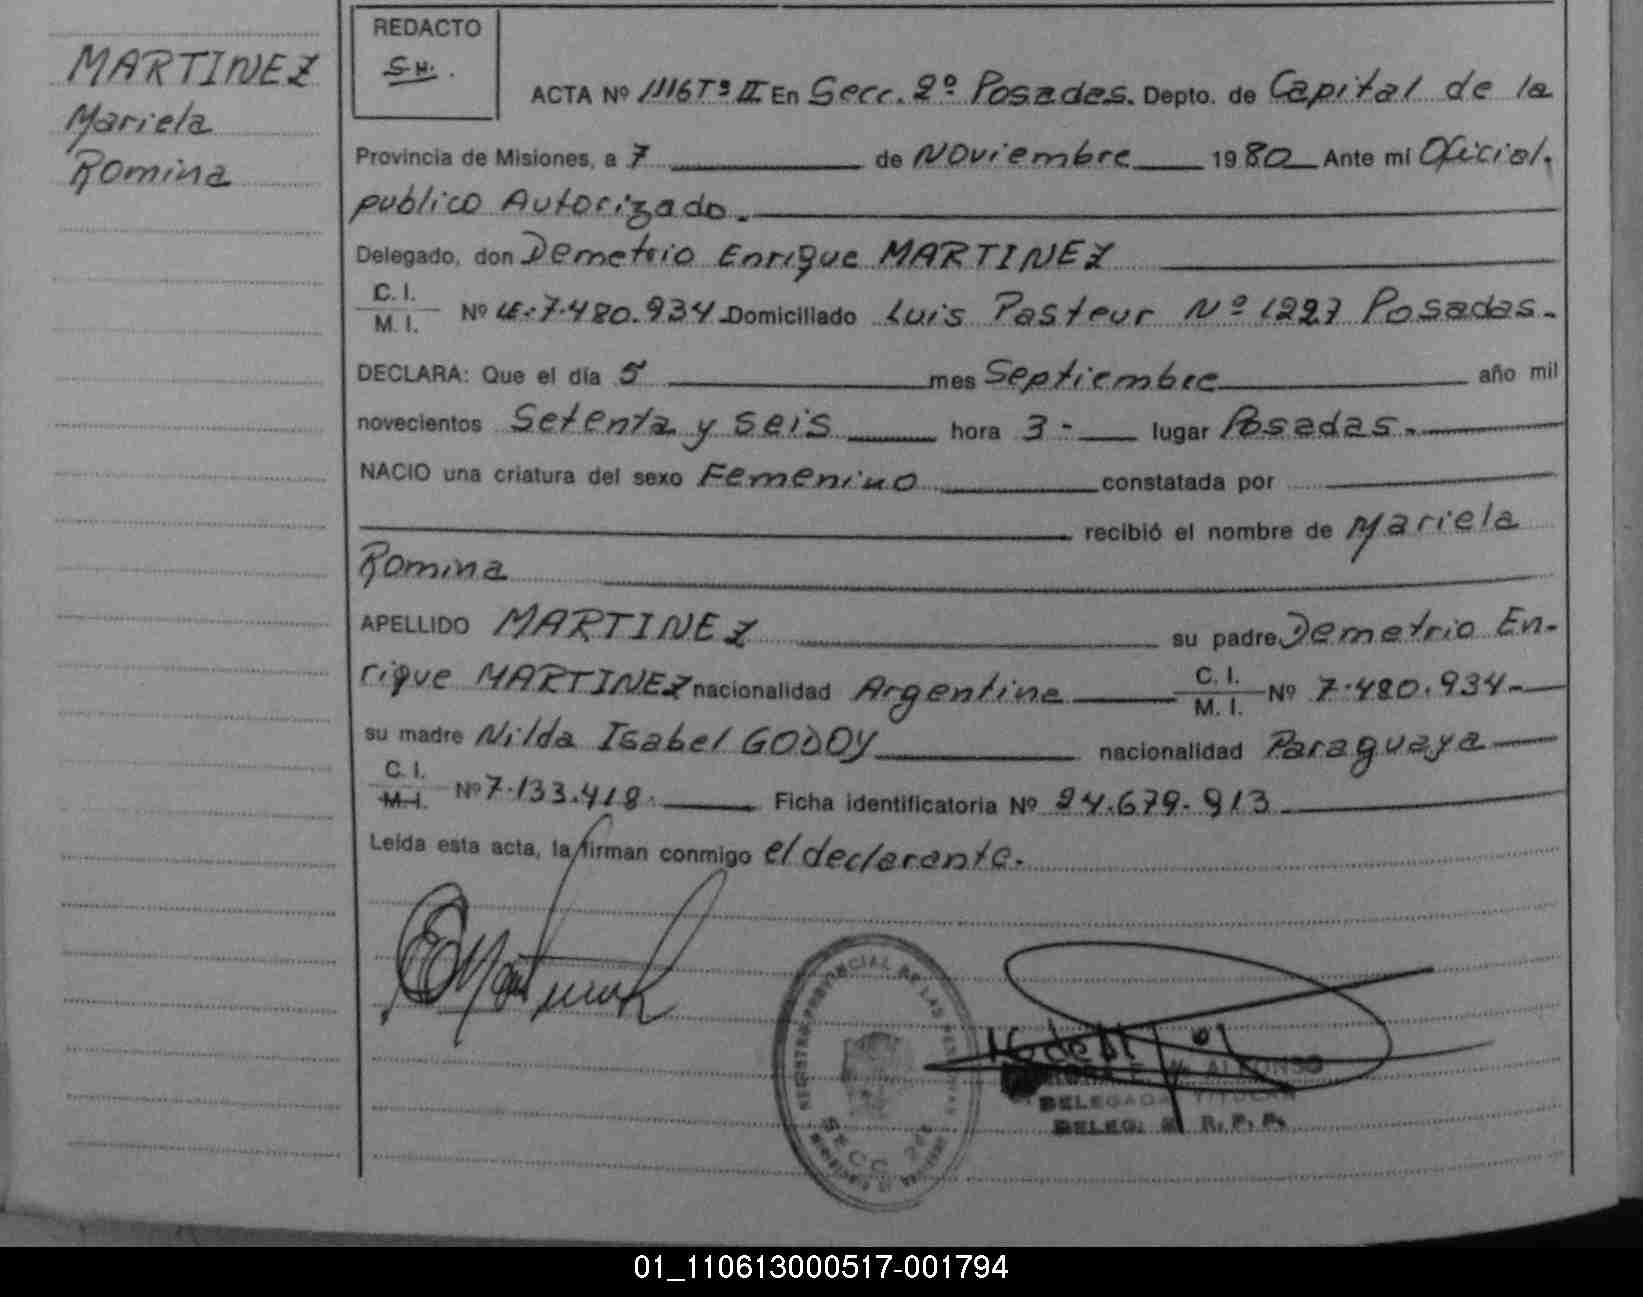 MARTINEZ
Mariela
Romina
REDACTO
S.H.
ACTA Nº 1116 Tº II En Secc. 2º Posadas. Depto. de Capital de la
Provincia de Misiones, a 7 de Noviembre 1980 Ante mi Oficial
publico Autorizado.
Delegado, don Demetrio Enrique MARTINEZ
C. I.
M. I. Nº LE. 7.480.934 Domiciliado Luis Pasteur Nº 1227 Posadas.
DECLARA: Que el día 5 mes Septiembre año mil
novecientos Setenta y Seis hora 3- lugar Posadas.
NACIO una criatura del sexo Femenino constatada por
recibió el nombre de Mariela
Romina
APELLIDO MARTINEZ su padre Demetrio En-
rique MARTINEZ nacionalidad Argentina C. I.
M. I. Nº 7.480.934-
su madre Nilda Isabel GODOY nacionalidad Paraguaya
C. I.
M. I. Nº 7.133.418. Ficha identificatoria Nº 24.679.913
Leída esta acta, la firman conmigo el declarante.
REGISTRO PROVINCIAL DE LAS PERSONAS
SECC. 2da
ALFONSO
DELEGADA TITULAR
DELEG. R. P. P.
01_110613000517-001794